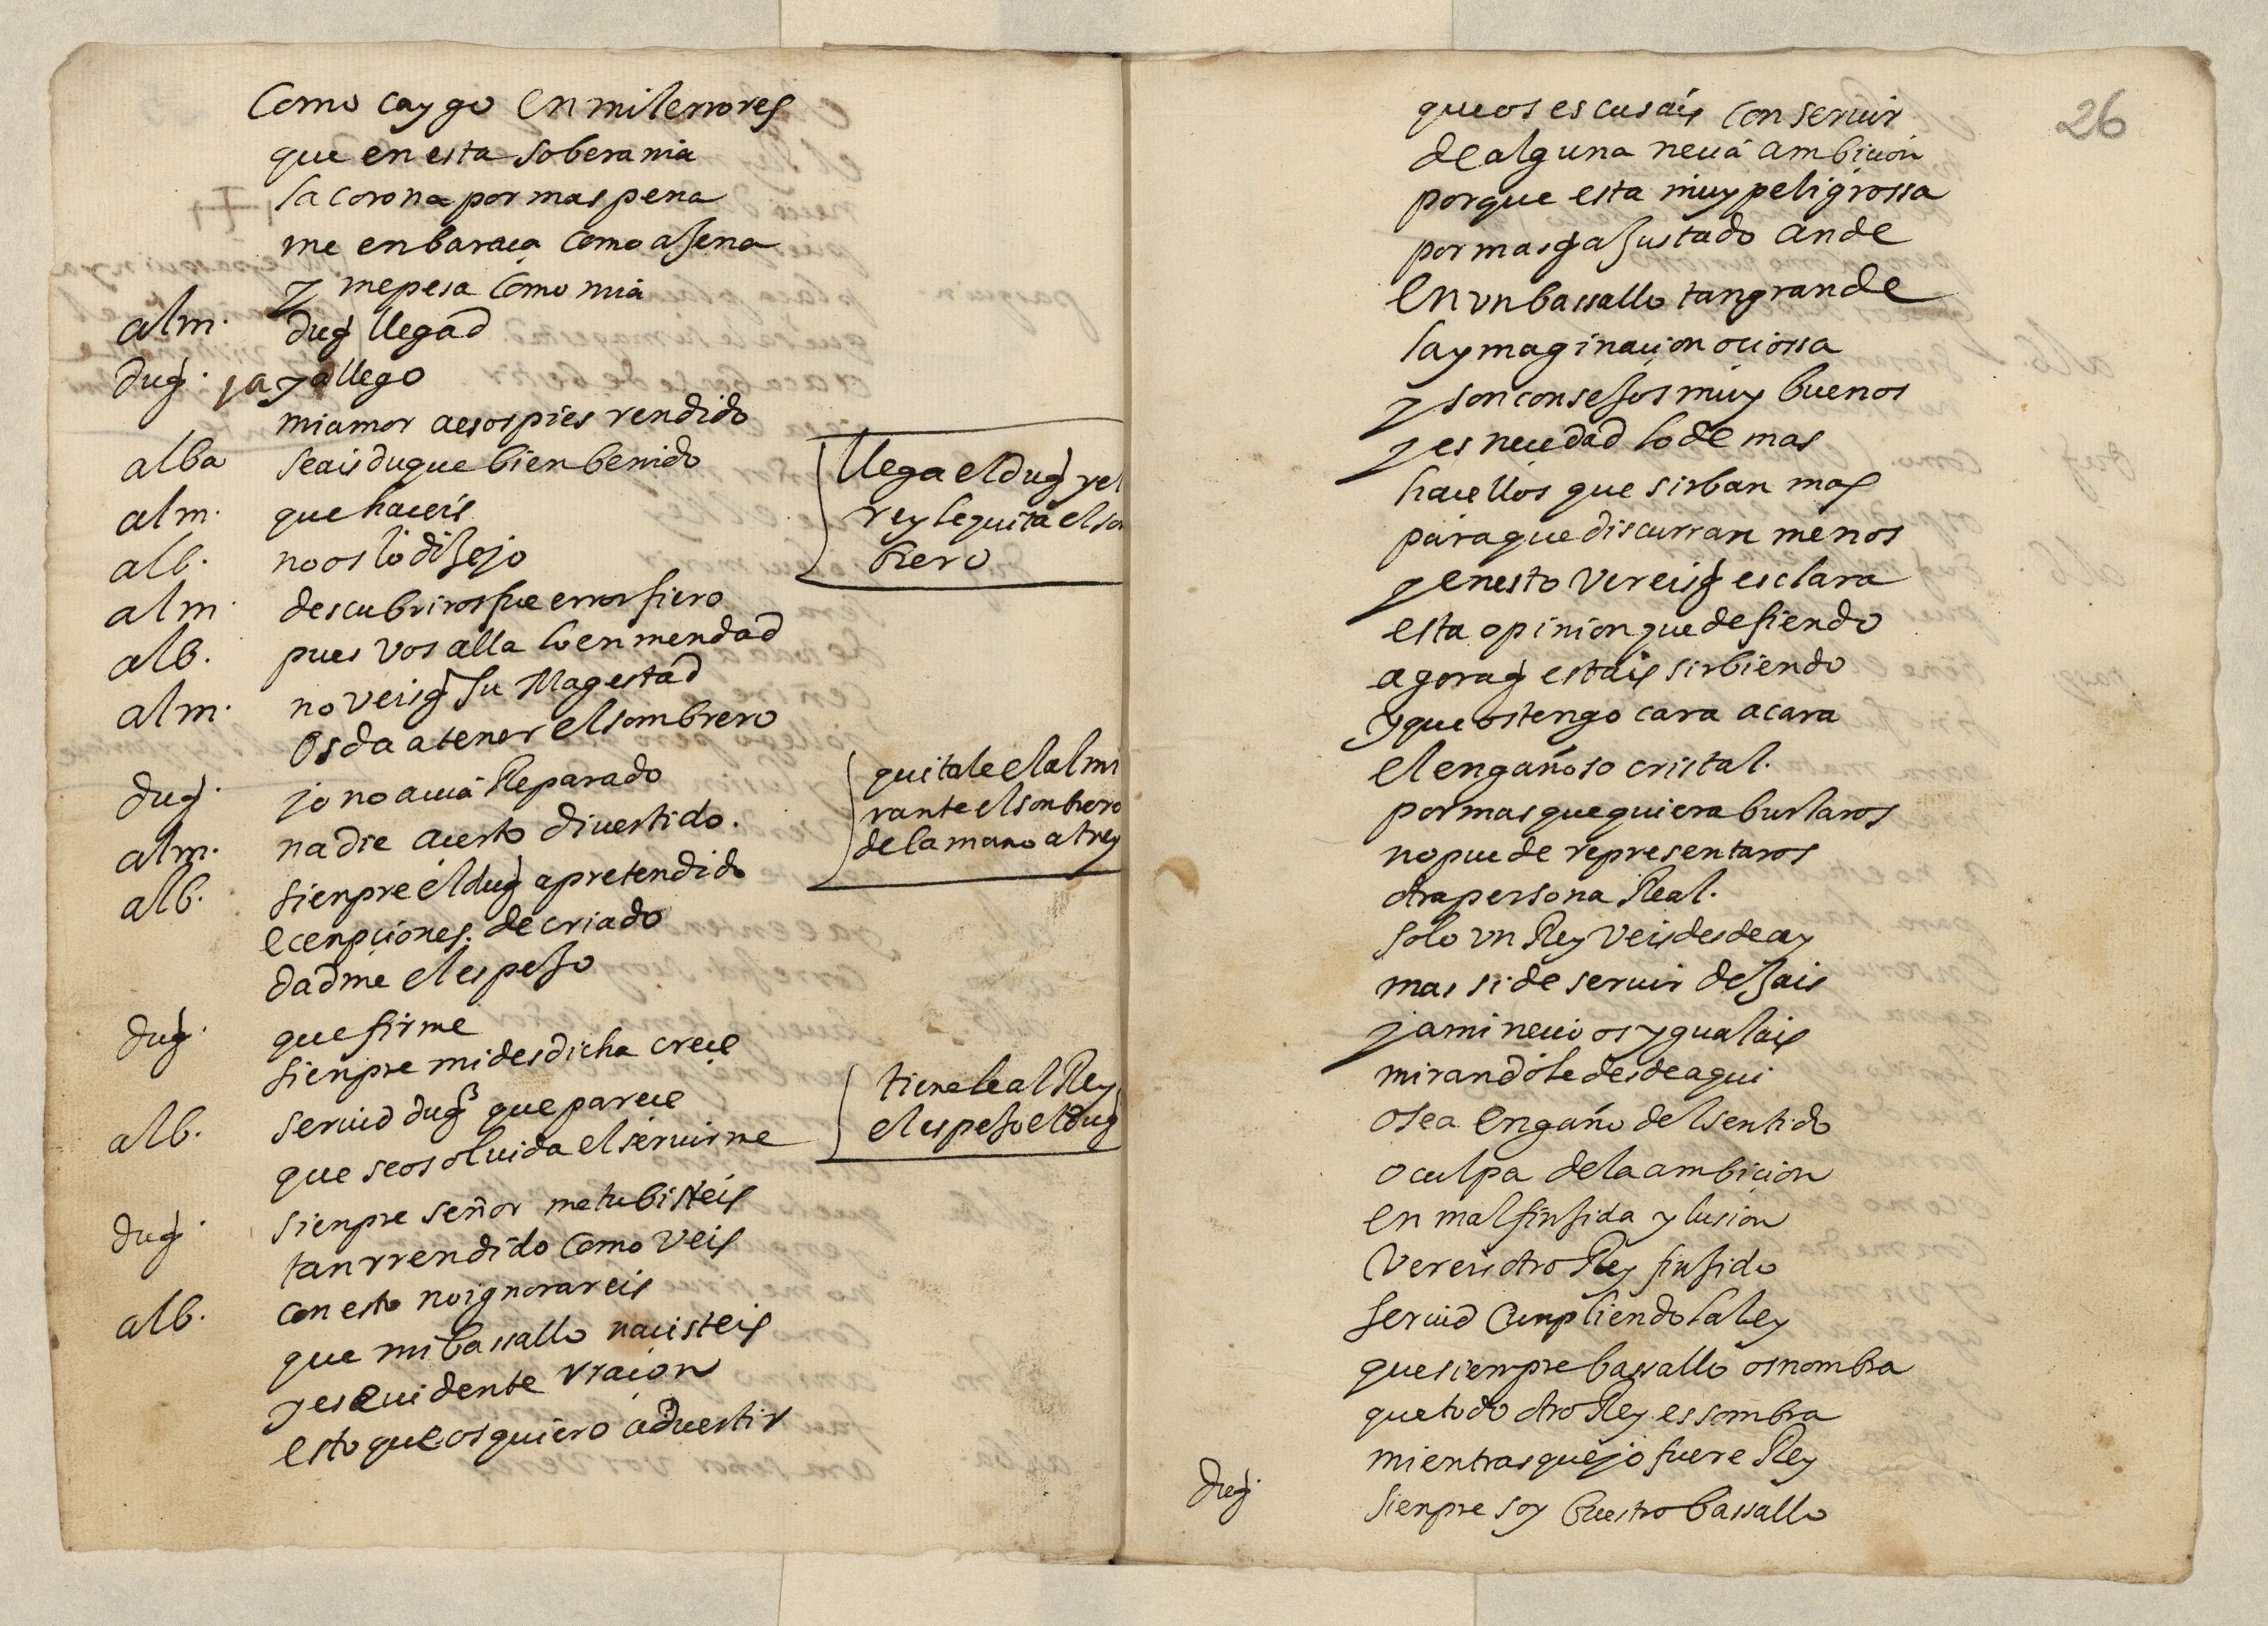 Como caygo en mil errores
que en esta soberania
la corona por mas pena
me enbaraça como ajena
y me pesa como mia
alm. duq llegad
duq. ja ya llego
mi amor a esos pies rendido
alba seais duque bien benido
llega el duq y el
rey le quita el son
brero
alm. que haceis
alb. no os lo dije jo
alm. descubriros fue error fiero
alb. pues vos alla lo enmendad
alm. no veis q su Magestad
os da a tener el sombrero
duq. jo no auia Reparado
quitale el almi
rante el sonbrero
de la mano al rey
alm. nadie acerto diuertido.
alb. sienpre el duq a pretendido
ecenpciones de criado
dadme el espejo
duq. que firme
sienpre mi desdicha crece
alb. seruid duq que parece
que se os oluida el seruirme
tienele al Rey
el espejo el duq
duq. sienpre señor me tubisteis
tan rrendido como veis
alb. con esto no ignorareis
que mi bassallo nacisteis
y es euidente rraçon
esto que os quiero aduertir
26
que os escusais con seruir
de alguna necia ambicion
porque esta muy peligrossa
por mas q ajustado ande
en vn bassallo tan grande
la ymaginacion ociossa
y son consejos muy buenos
y es necedad lo de mas
hacellos que sirban mas
para que discurran menos
y en esto vereis q es clara
esta opinion que defiendo
agora q estais sirbiendo
y que os tengo cara a cara
el engañoso cristal.
por mas que quiera burlaros
no puede representaros
otra persona Real.
solo vn Rey veis desde ay
mas si de seruir dejais
y a mi necio os ygualais
mirandole desde aqui
o sea engaño del sentido
o culpa de la ambicion
en mal finjida ylusion
vereis otro Rey finjido
seruid cunpliendo la ley
que sienpre bassallo os nombra
que todo otro Rey es sombra
mientras que jo fuere Rey
duq. sienpre soy buestro bassallo